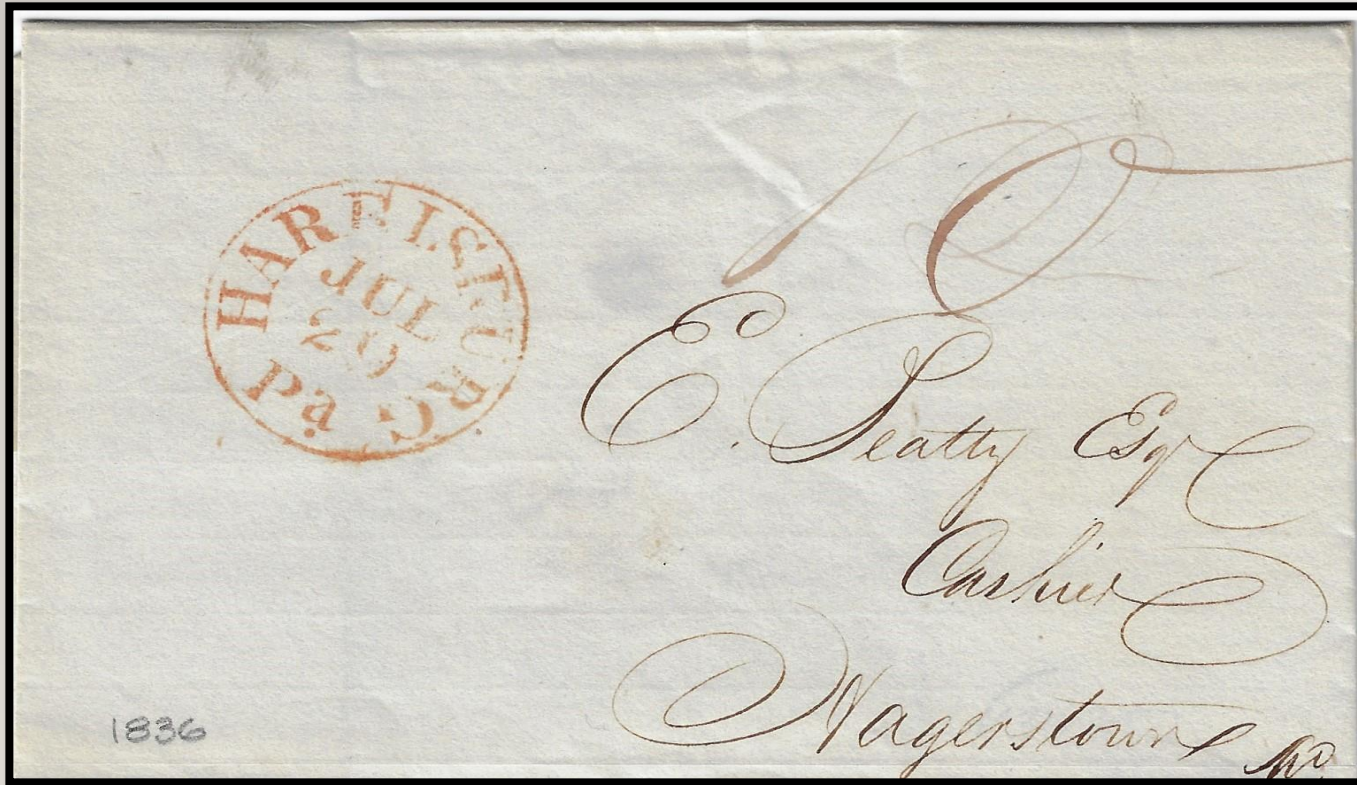 HARRISBURG, Pa
JUL
20
10
E. Beatty Esqr
Cashier
Hagerstown Md.
1836